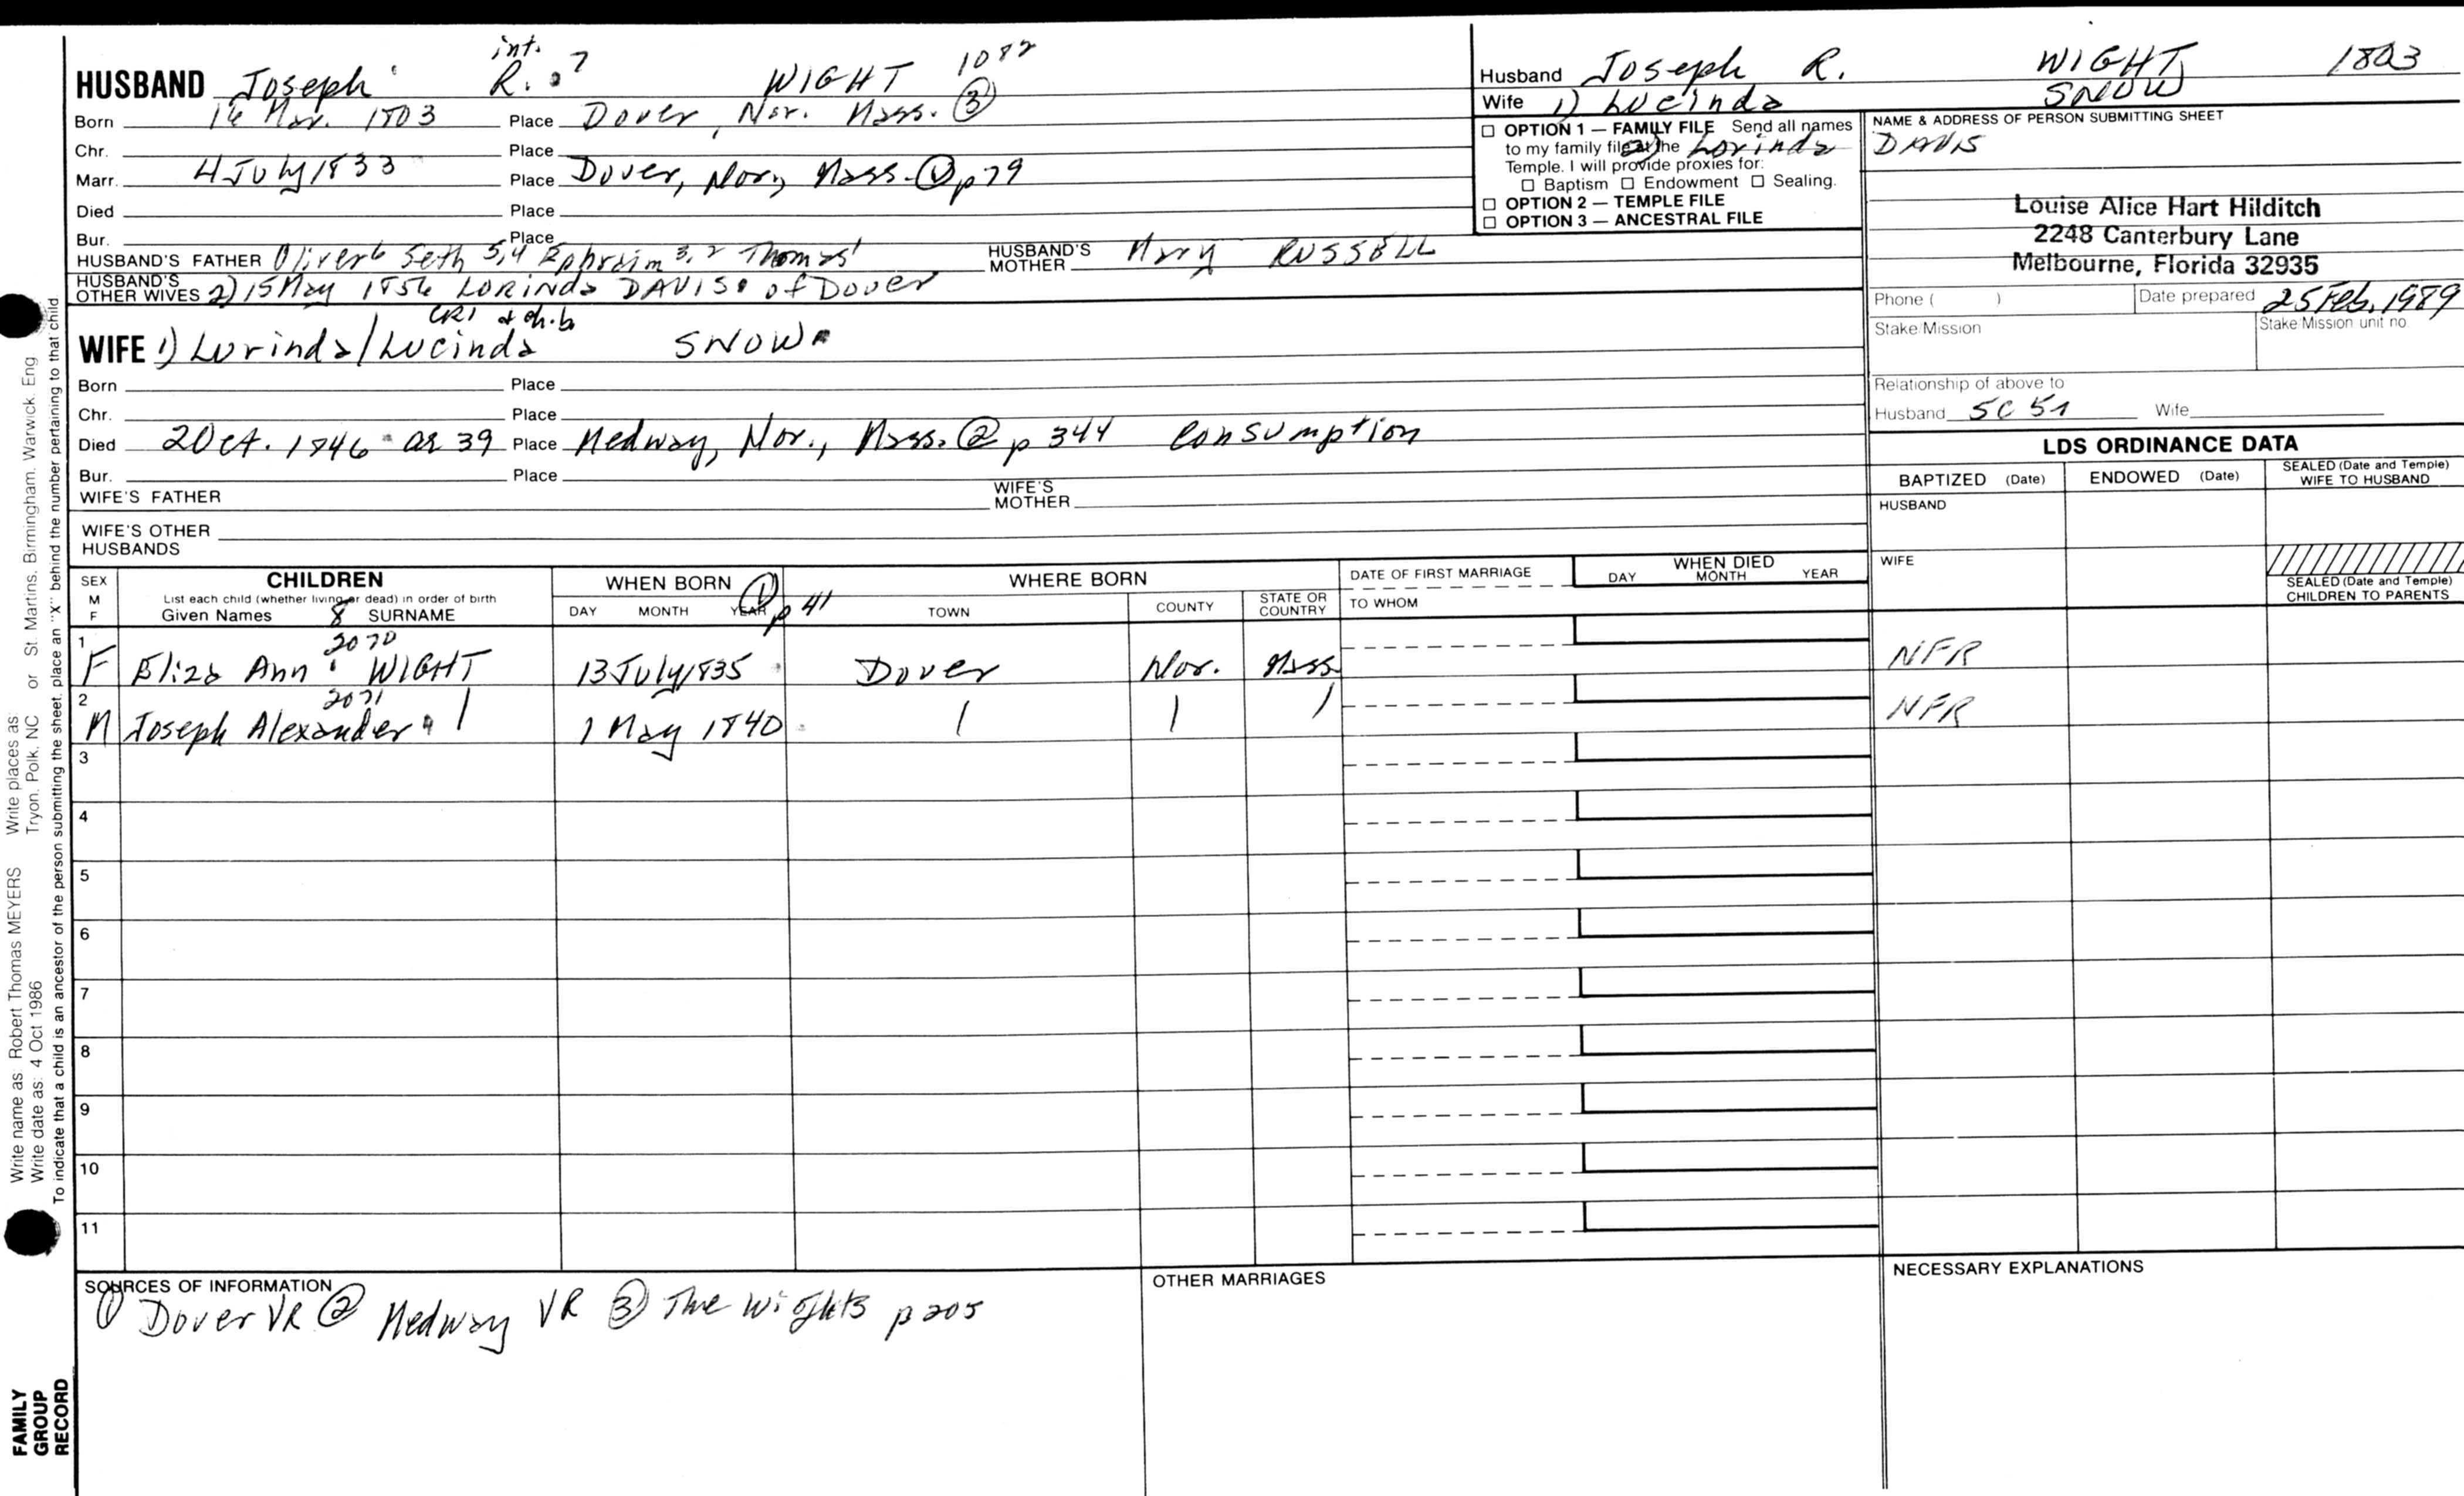 int.
HUSBAND Joseph R. 7 WIGHT 1082
Born 16 Mar. 1803 Place Dover, Nor. Mass. ③
Chr. Place
Marr. 4 July 1833 Place Dover, Nor, Mass. ① p79
Died Place
Bur. Place
HUSBAND'S FATHER Oliver6 Seth 5,4 Ephraim 3,2 Thomas1 HUSBAND'S MOTHER Mary RUSSELL
HUSBAND'S OTHER WIVES 2) 15 May 1856 LORINDA DAVIS of Dover
CR1 & ch.b
WIFE 1) Lurinda/Lucinda SNOW
Born Place
Chr. Place
Died 2 Oct. 1846 ae 39 Place Medway, Nor., Mass. ② p 344 Consumption
Bur. Place
WIFE'S FATHER WIFE'S MOTHER
WIFE'S OTHER HUSBANDS
Husband Joseph R. WIGHT 1803
Wife 1) Lucinda SNOW
☐ OPTION 1 — FAMILY FILE Send all names
to my family file at the
2) Lorinda DAVIS
Temple. I will provide proxies for:
☐ Baptism ☐ Endowment ☐ Sealing.
☐ OPTION 2 — TEMPLE FILE
☐ OPTION 3 — ANCESTRAL FILE
NAME & ADDRESS OF PERSON SUBMITTING SHEET
Louise Alice Hart Hilditch
2248 Canterbury Lane
Melbourne, Florida 32935
Phone ( ) Date prepared 25 Feb. 1989
Stake/Mission Stake/Mission unit no.
Relationship of above to
Husband 5C 5r Wife
LDS ORDINANCE DATA
BAPTIZED (Date) ENDOWED (Date) SEALED (Date and Temple) WIFE TO HUSBAND
HUSBAND
WIFE
SEALED (Date and Temple) CHILDREN TO PARENTS
SEX M F CHILDREN WHEN BORN ① p 41 WHERE BORN DATE OF FIRST MARRIAGE WHEN DIED
List each child (whether living or dead) in order of birth
Given Names 8 SURNAME DAY MONTH YEAR TOWN COUNTY STATE OR COUNTRY TO WHOM DAY MONTH YEAR
2070
1 F Eliza Ann WIGHT 13 July 1835 Dover Nor. Mass. NFR
2071
2 M Joseph Alexander 1 May 1840 NFR
3
4
5
6
7
8
9
10
11
SOURCES OF INFORMATION
① Dover VR ② Medway VR ③ The Wights p 205
OTHER MARRIAGES
NECESSARY EXPLANATIONS
Write name as: Robert Thomas MEYERS Write places as: Tryon, Polk, NC or St. Martins, Birmingham, Warwick, Eng
Write date as: 4 Oct 1986
To indicate that a child is an ancestor of the person submitting the sheet, place an "X" behind the number pertaining to that child
FAMILY
GROUP
RECORD